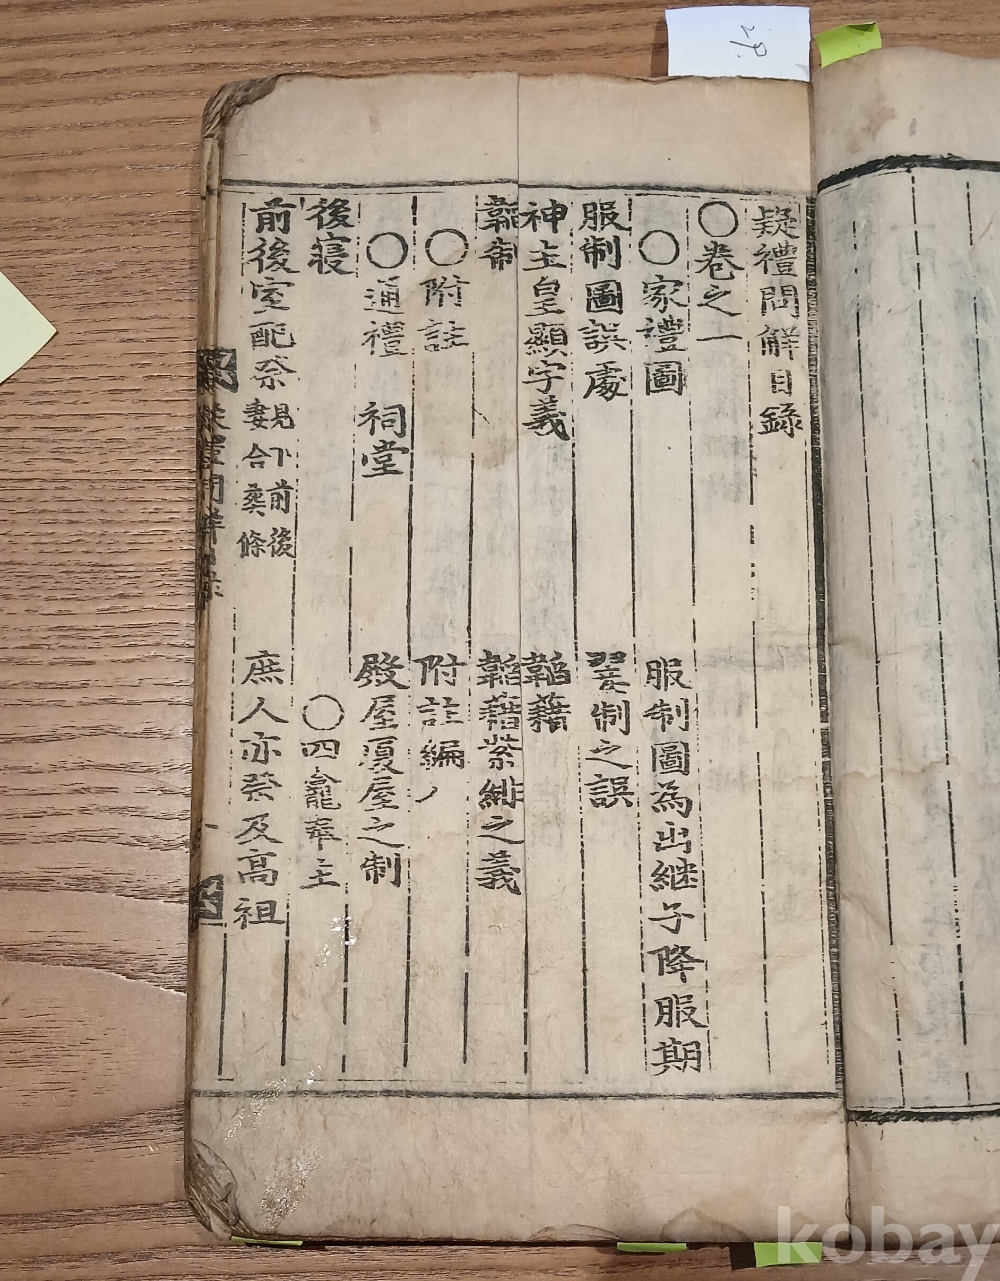 疑禮問解目錄
○卷之一
○家禮圖 服制圖為出継子降服期
服制圖誤處 翣制之誤
神主皇顯字義 韜藉
韜制 韜藉紫緋之義
○附註 附註編
○通禮 祠堂 殿屋厦屋之制
後寝 ○四龕奉主
前後室配祭 見下前後妻合葬條 庶人亦祭及高祖
疑禮問解目錄
kobay